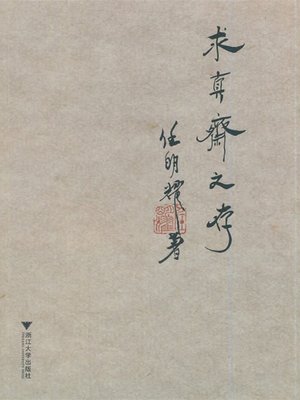 求真齋文存
任明耀著
浙江大学出版社